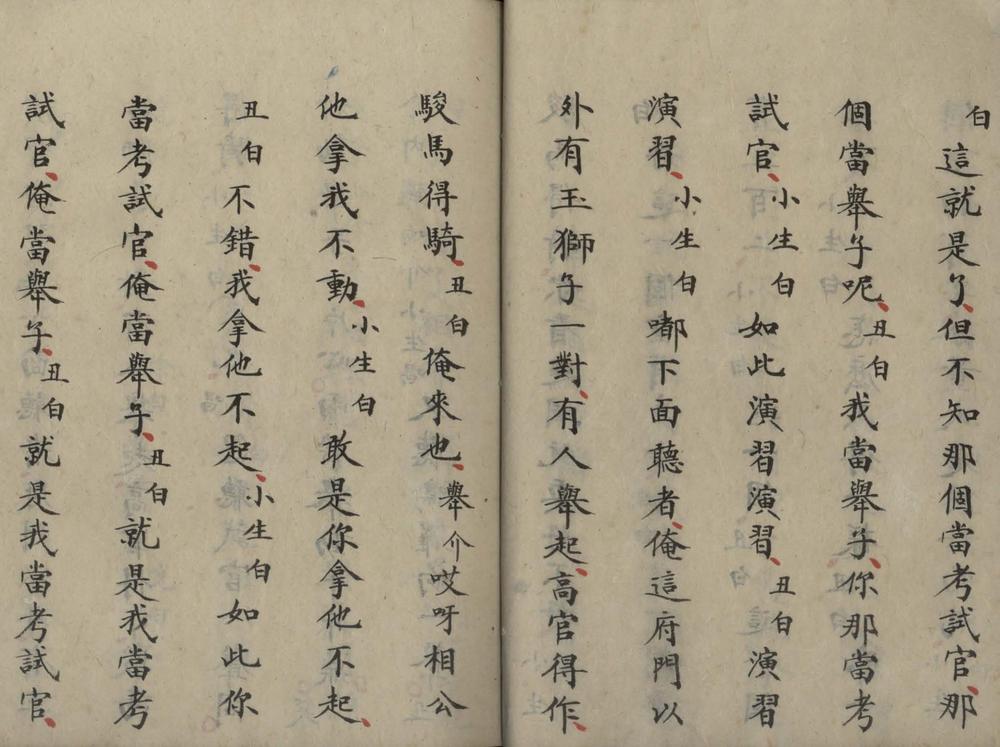 白這就是了、但不知那個當考試官、那
個當舉子呢、丑白我當舉子、你那當考
試官、小生白如此演習演習、丑白演習
演習、小生白嘟下面聽者、俺這府門以
外有玉獅子一對、有人舉起、高官得作、
駿馬得騎、丑白俺來也、舉介哎呀相公
他拿我不動、小生白敢是你拿他不起、
丑白不錯、我拿他不起、小生白如此你
當考試官、俺當舉子、丑白就是我當考
試官、俺當舉子、丑白就是我當考試官、